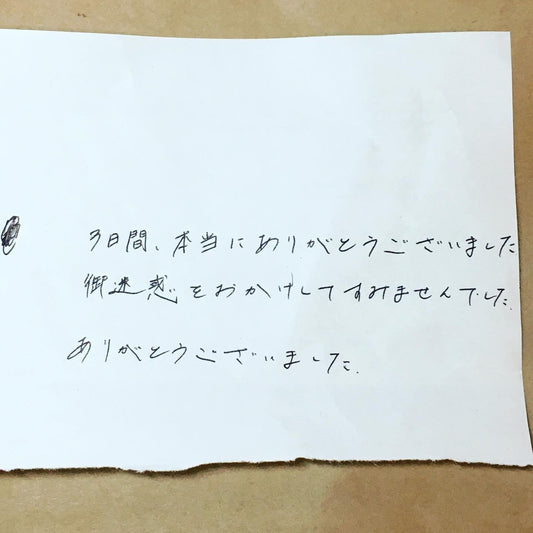 3日間、本当にありがとうございました
御迷惑をおかけしてすみませんでした.
ありがとうございました.